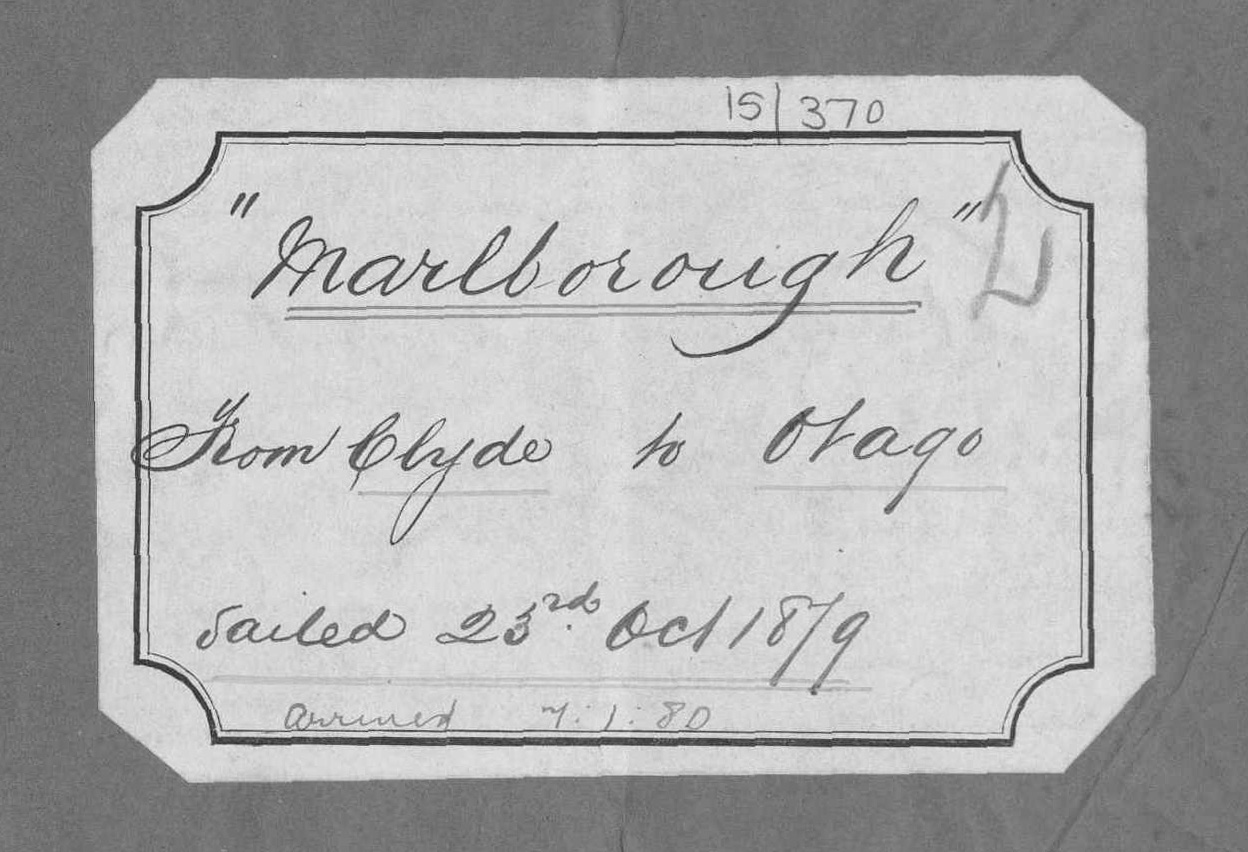 15/370
"Marlborough"
From Clyde to Otago
Sailed 23rd. Oct 1879
arrived 7.1.80